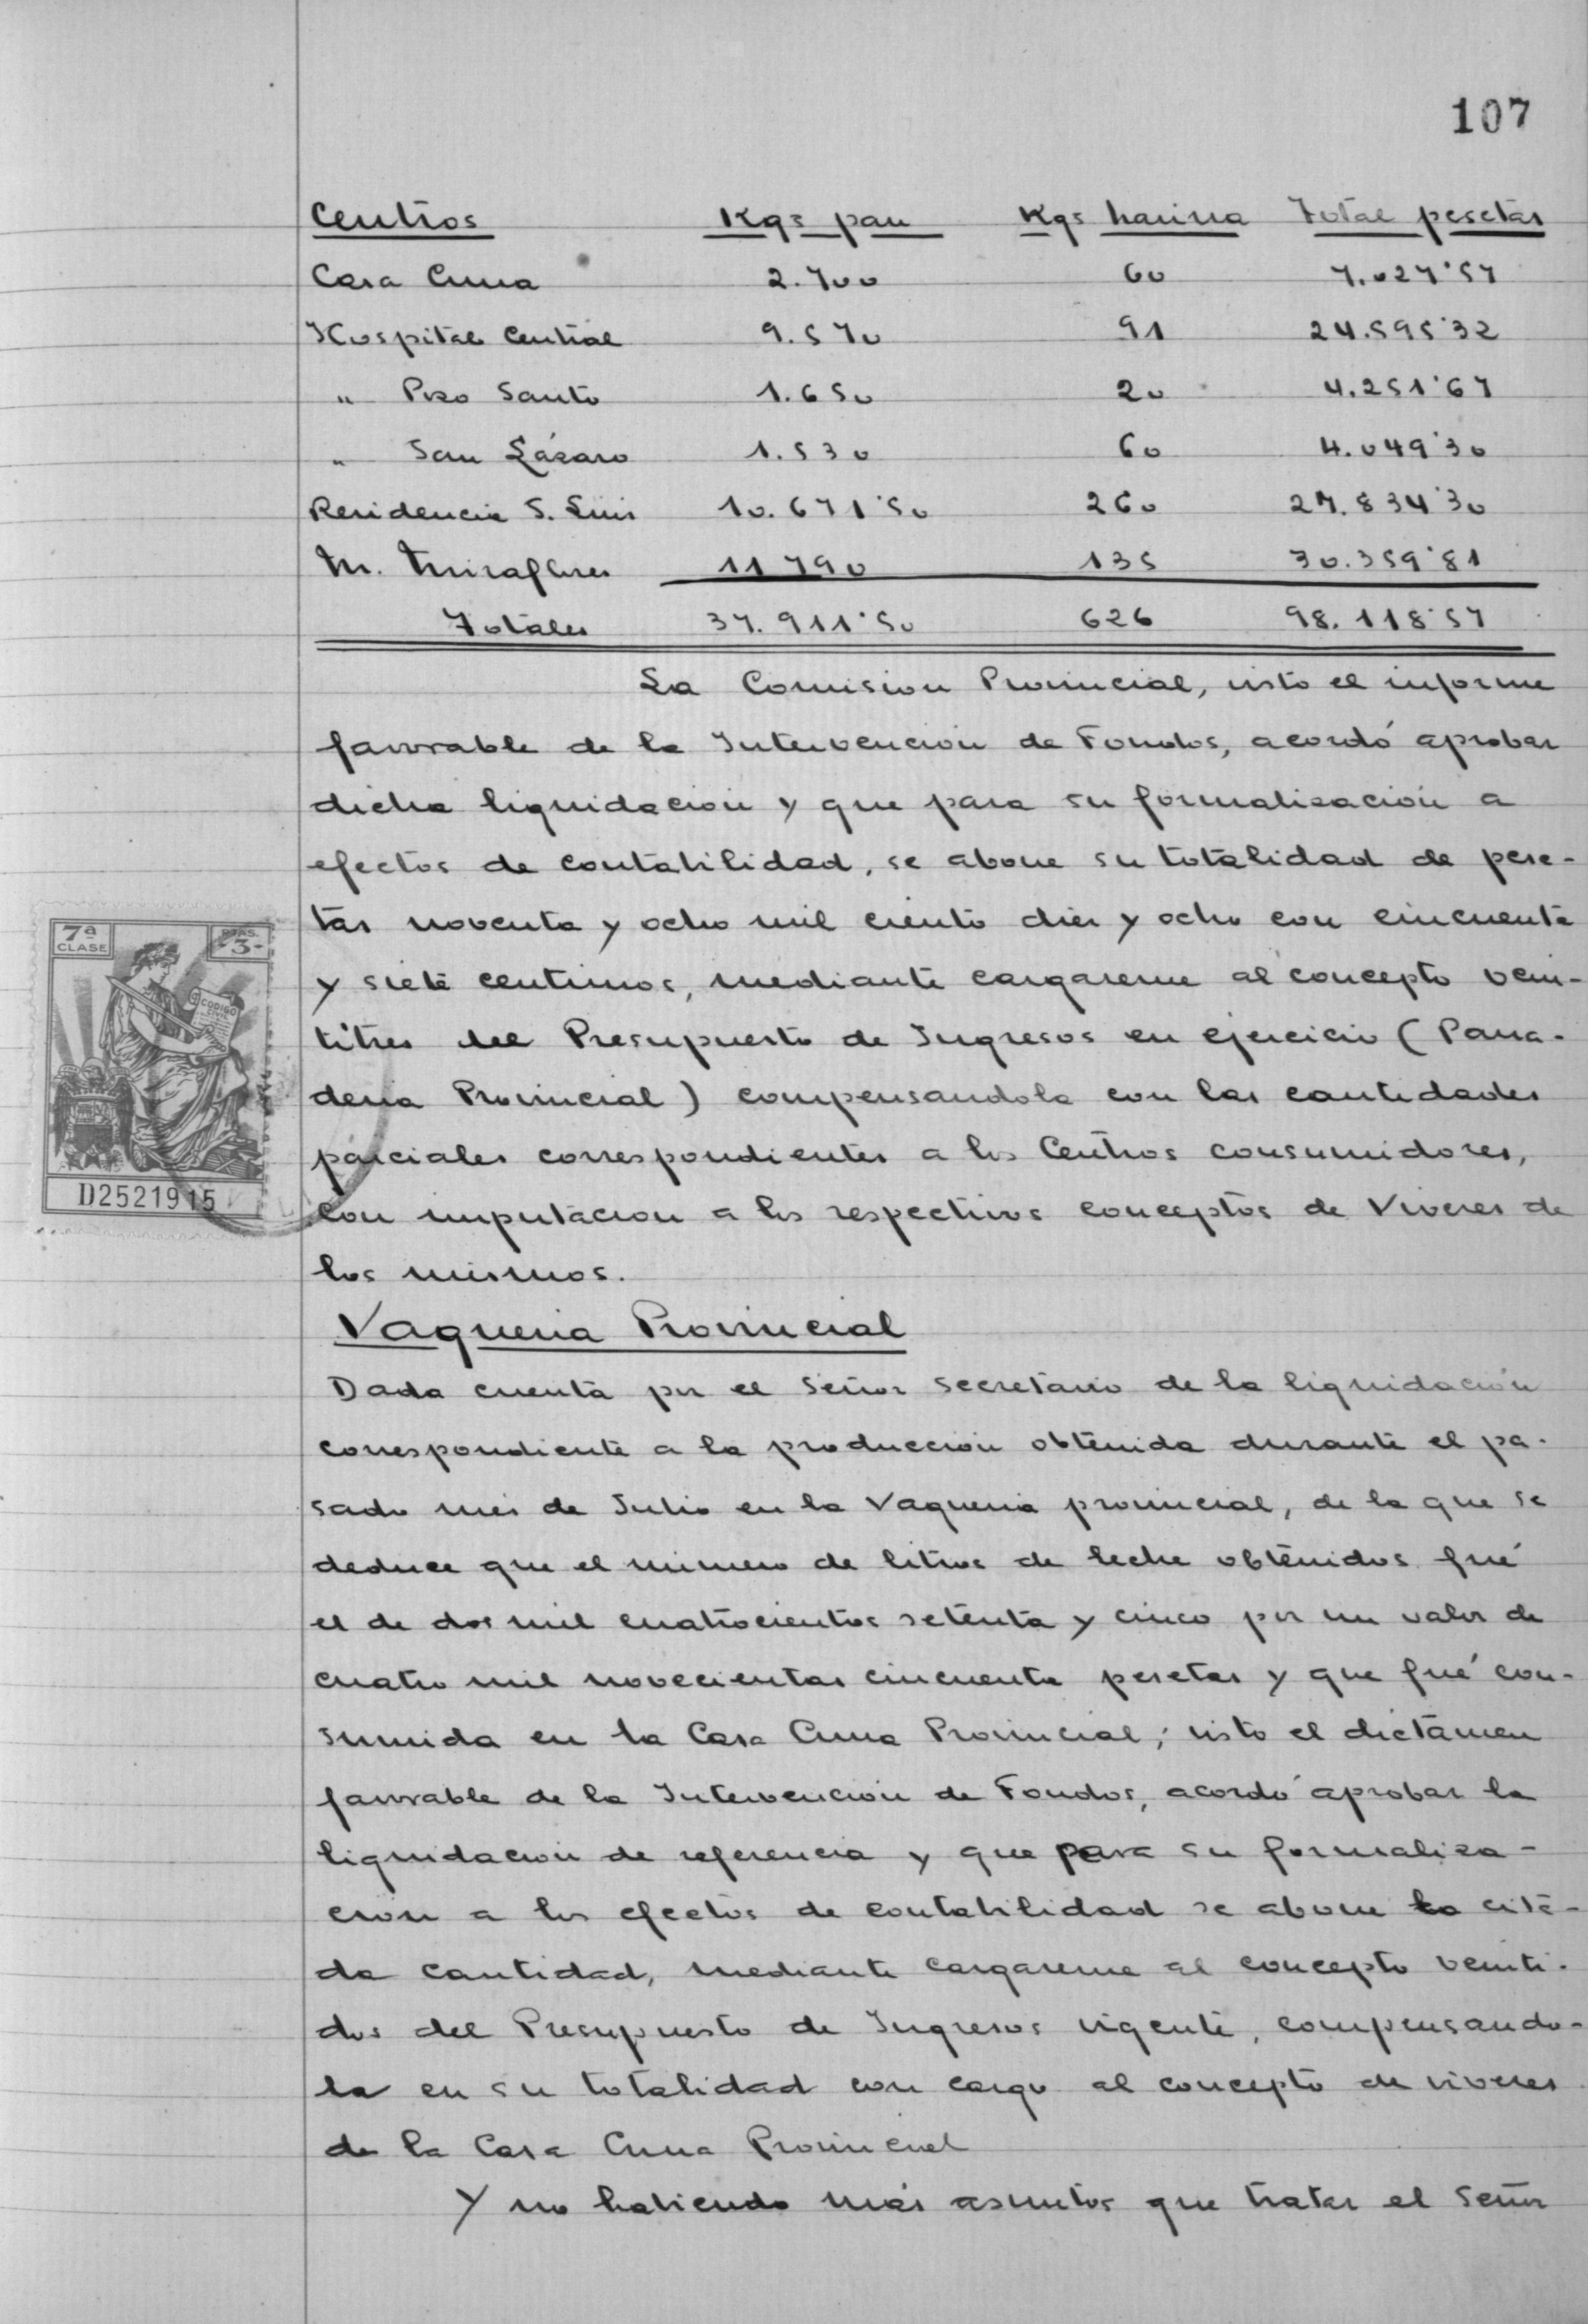 107
Centros Kgs pan Kgs harina Total pesetas
Casa Cuna 2.700 60 7.027'57
Hospital Central 9.570 91 24.595'32
" Pozo Santo 1.650 20 4.251'67
" San Lázaro 1.530 60 4.049'30
Residencia S. Luis 10.671'50 260 27.834'30
M. Miraflores 11790 135 30.359'81
Totales 37.911'50 626 98.118'57
La Comision Provincial, visto el informe
favorable de la Intervencion de Fondos, acordó aprobar
dicha liquidacion y que para su formalizacion a
efectos de contabilidad, se abone su totalidad de pese-
tas noventa y ocho mil ciento diez y ocho con cincuenta
y siete centimos, mediante cargareme al concepto vein-
titres del Presupuesto de Ingresos en ejercicio (Pana-
deria Provincial) compensandola con las cantidades
parciales correspondientes a los Centros consumidores,
con imputacion a los respectivos conceptos de Viveres de
los mismos.
7ª CLASE
PTAS. -3-
CODIGO
D2521915
Vaqueria Provincial
Dada cuenta por el Señor Secretario de la liquidación
correspondiente a la produccion obtenida durante el pa-
sado mes de Julio en la Vaqueria provincial, de la que se
deduce que el numero de litros de leche obtenidos fué
el de dos mil cuatrocientos setenta y cinco por un valor de
cuatro mil novecientas cincuenta pesetas y que fué con-
sumida en la Casa Cuna Provincial; visto el dictámen
favorable de la Intervencion de Fondos, acordó aprobar la
liquidacion de referencia y que para su formaliza-
cion a los efectos de contabilidad se abone la cita-
da cantidad, mediante cargareme al concepto veinti-
dos del Presupuesto de Ingresos vigente, compensando-
la en su totalidad con cargo al concepto de viveres
de la Casa Cuna Provincial
Y no habiendo más asuntos que tratar el Señor